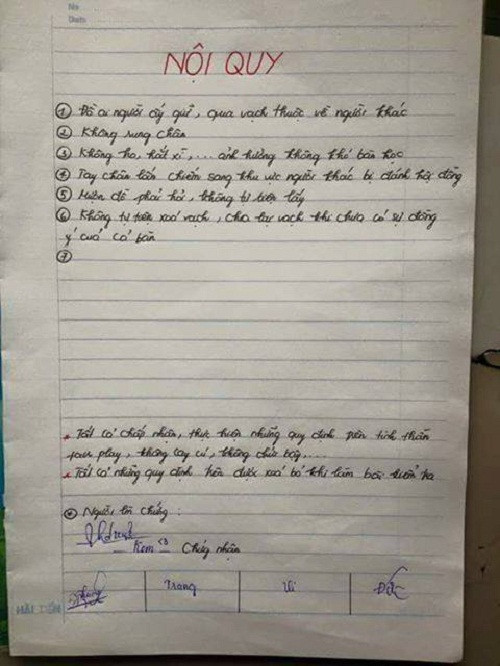 No
Date
NỘI QUY
① Đồ ai người ấy giữ, qua vạch thuộc về người khác
② Không rung chân
③ Không ho, hắt xì, ... ảnh hưởng không khí bàn học
④ Tay chân lấn chiếm sang khu vực người khác bị đánh hội đồng
⑤ Mượn đồ phải hỏi, không tự tiện lấy
⑥ Không tự tiện xoá vạch, chia lại vạch khi chưa có sự đồng
ý của cả bàn
⑦
* Tất cả chấp nhận, thực hiện những quy định trên tinh thần
play, không cay cú, không chửi bậy....
* Tất cả những quy định trên được xoá bỏ khi làm bài kiểm tra
Người làm chứng:
Kem Chứng nhận
Trang Vi Đức
HẢI TIẾN